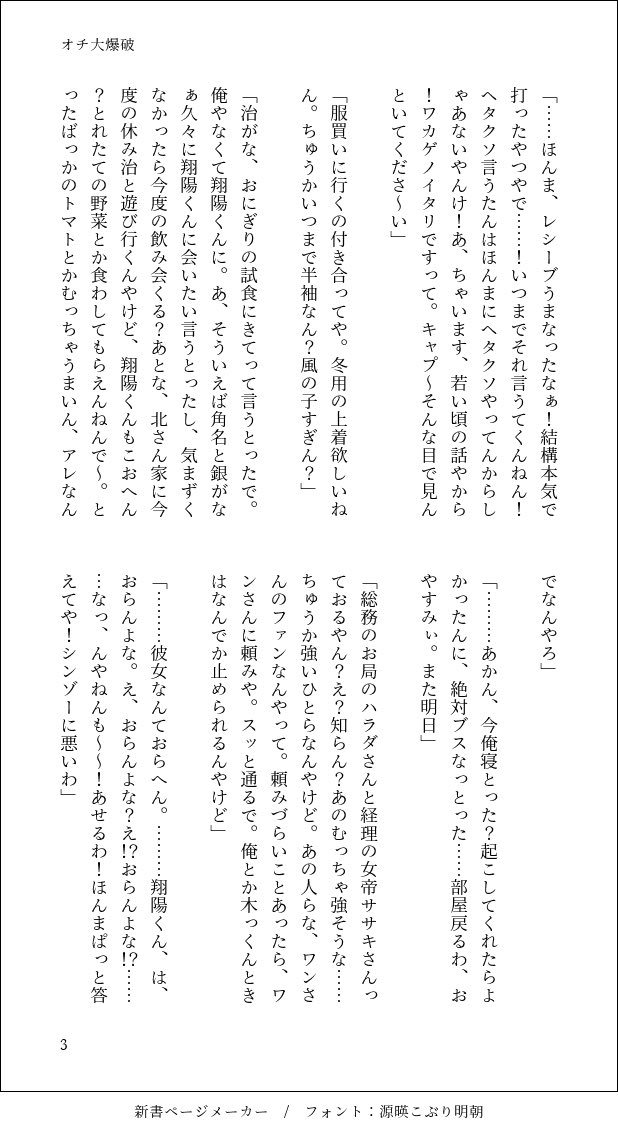 オチ大爆破
「……ほんま、レシーブうまなったなぁ！結構本気で
打ったやつやで……！いつまでそれ言うてくんねん！
ヘタクソ言うたんはほんまにヘタクソやってんからし
ゃあないやんけ！あ、ちゃいます、若い頃の話やから
！ワカゲノイタリですって。キャプ〜そんな目で見ん
といてくださ〜い」
「服買いに行くの付き合ってや。冬用の上着欲しいね
ん。ちゅうかいつまで半袖なん？風の子すぎん？」
「治がな、おにぎりの試食にきてって言うとったで。
俺やなくて翔陽くんに。あ、そういえば角名と銀がな
ぁ久々に翔陽くんに会いたい言うとったし、気まずく
なかったら今度の飲み会くる？あとな、北さん家に今
度の休み治と遊び行くんやけど、翔陽くんもこおへん
？とれたての野菜とか食わしてもらえんねんで〜。と
ったばっかのトマトとかむっちゃうまいん、アレなん
でなんやろ」
「………あかん、今俺寝とった？起こしてくれたらよ
かったんに、絶対ブスなっとった……部屋戻るわ、お
やすみぃ。また明日」
「総務のお局のハラダさんと経理の女帝ササキさんっ
ておるやん？え？知らん？あのむっちゃ強そうな……
ちゅうか強いひとらなんやけど。あの人らな、ワンさ
んのファンなんやって。頼みづらいことあったら、ワ
ンさんに頼みや。スッと通るで。俺とか木っくんとき
はなんでか止められるんやけど」
「………彼女なんておらへん。………翔陽くん、は、
おらんよな。え、おらんよな？え!?おらんよな!?……
…なっ、んやねんも〜〜！あせるわ！ほんまぱっと答
えてや！シンゾーに悪いわ」
3
新書ページメーカー / フォント：源暎こぶり明朝